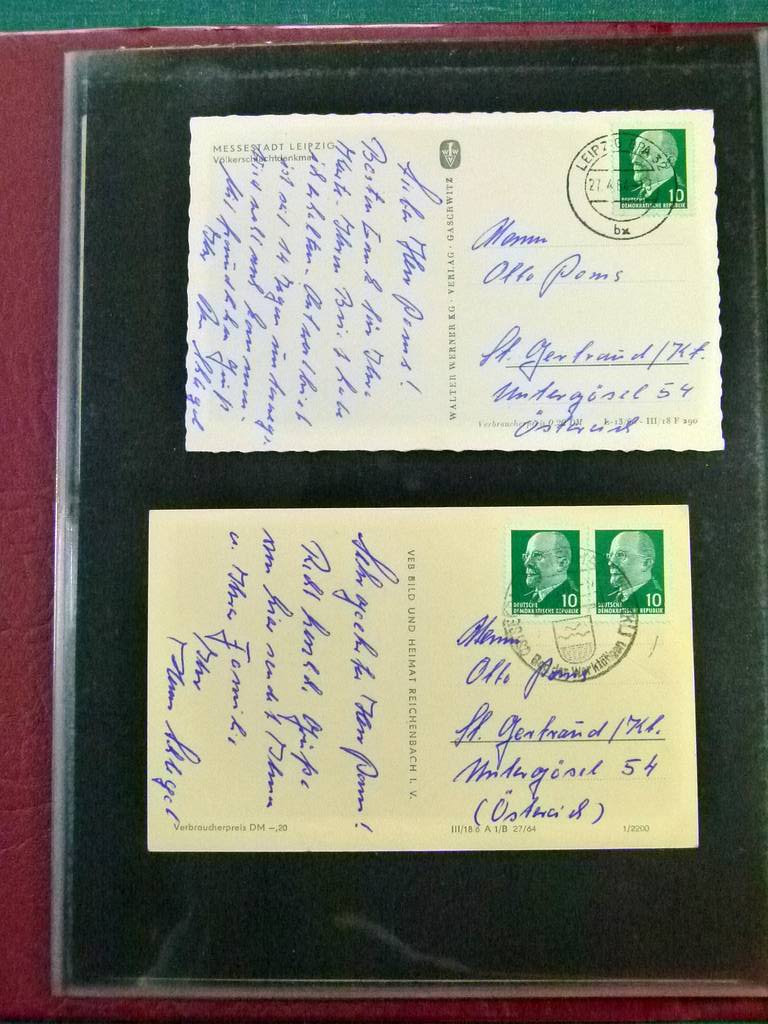 MESSESTADT LEIPZIG
Völkerschlachtdenkmal
Lieber Herr Poms!
Besten Dank für Ihre
Karte. Ihren Brief habe
ich erhalten.
ist seit 14 Tagen unterwegs
wird wohl
Mit freundlichen Grüßen
Ihr
WALTER WERNER KG · VERLAG · GASCHWITZ
LEIPZIG
27.4.64
bx
10
DEUTSCHE
DEMOKRATISCHE REPUBLIK
Herrn
Otto Poms
St. Gertraud/Kt.
Untergösel 54
Österreich
Verbraucherpreis 0,20 DM
III/18 F 290
Sehr geehrter Herr Poms!
Recht herzl. Grüße
von hier sendet Ihnen
u. Ihrer Familie
Ihr
Hans Schlegel
VEB BILD UND HEIMAT REICHENBACH I. V.
DEUTSCHE
DEMOKRATISCHE REPUBLIK
10
DEUTSCHE
DEMOKRATISCHE REPUBLIK
10
Bad der Werktätigen
Herrn
Otto Poms
St. Gertraud/Kt.
Untergösel 54
(Österreich)
Verbraucherpreis DM –,20
III/18/6 A 1/B 27/64
1/2200